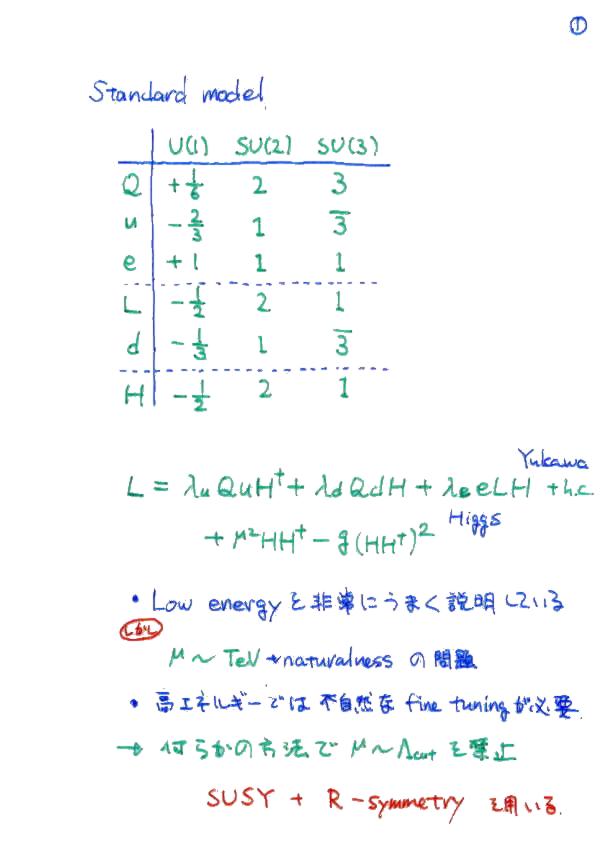 ①
Standard model
U(1) SU(2) SU(3)
Q +1/6 2 3
u -2/3 1 3̅
e +1 1 1
L -1/2 2 1
d -1/3 1 3̅
H -1/2 2 1
Yukawa
L = λu QuH† + λd QdH + λe eLH + h.c.
Higgs
+ μ²HH† - g(HH†)²
• Low energyを非常にうまく説明している
しかし
μ ~ TeV + naturalness の問題
• 高エネルギーでは不自然な fine tuning が必要
→ 何らかの方法で μ~Λcut を禁止
SUSY + R-symmetry を用いる.